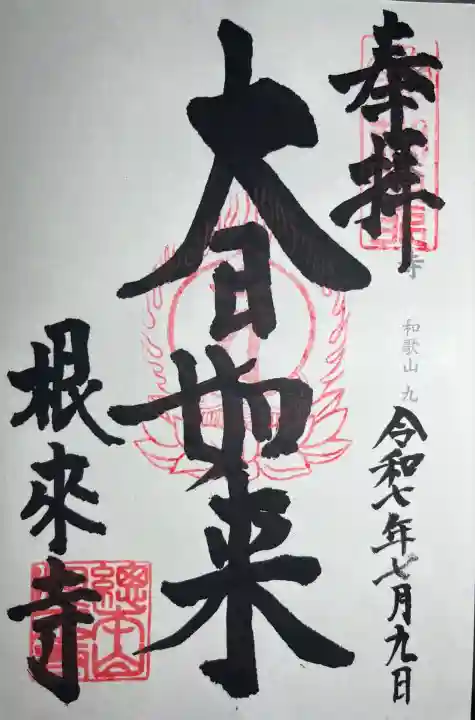 奉拝
寺
和歌山 九
令和七年七月九日
大日如来
根来寺
總本